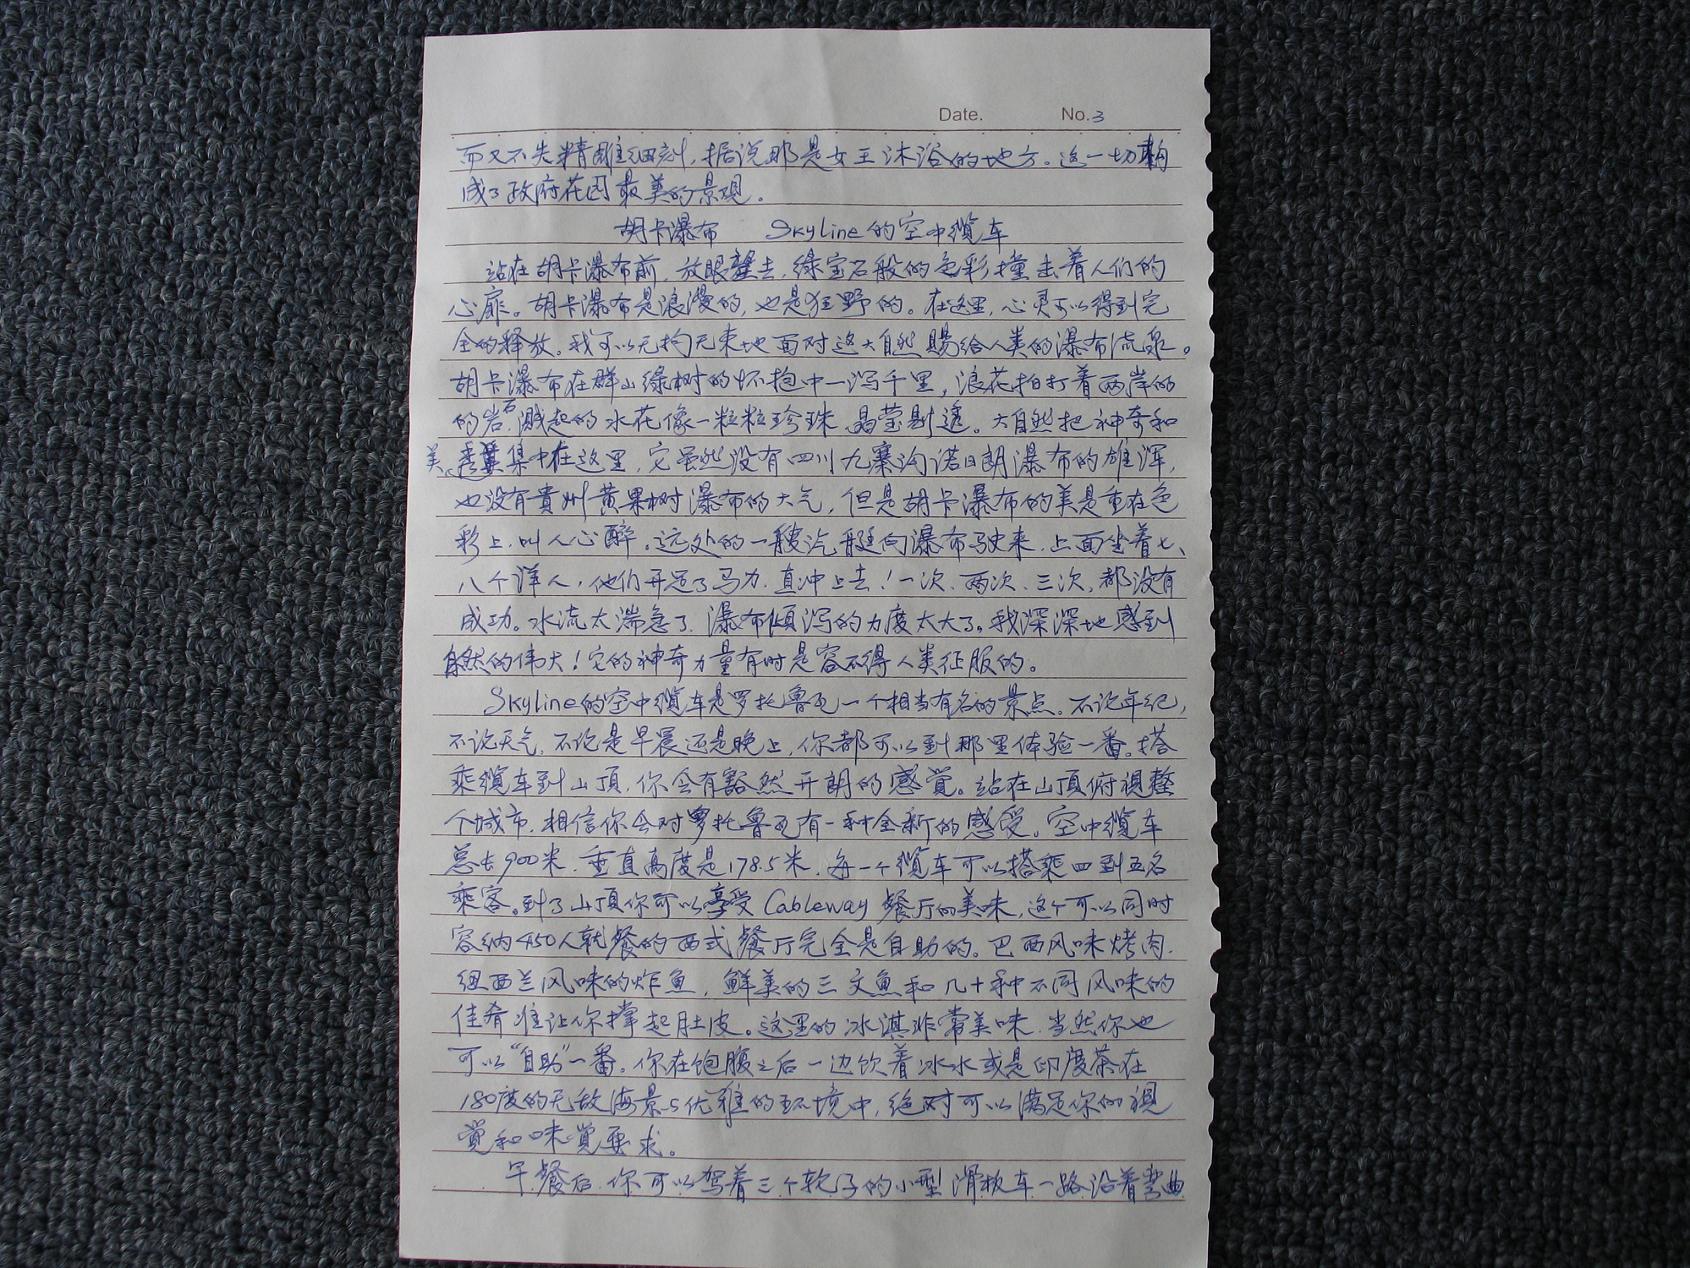 Date. No.3
而又不失精雕细刻,据说那是女王沐浴的地方。这一切构
成了政府花园最美的景观。
胡卡瀑布 Skyline的空中缆车
站在胡卡瀑布前,放眼望去,绿宝石般的色彩撞击着人们的
心扉。胡卡瀑布是浪漫的,也是狂野的。在这里,心灵可以得到完
全的释放。我可以无拘无束地面对这大自然赐给人类的瀑布流泉。
胡卡瀑布在群山绿树的怀抱中一泻千里,浪花拍打着两岸的
的岩石,溅起的水花像一粒粒珍珠,晶莹剔透。大自然把神奇和
秀美集中在这里,它虽然没有四川九寨沟诺日朗瀑布的雄浑,
也没有貴州黄果树瀑布的大气,但是胡卡瀑布的美是重在色
彩上,叫人心醉。远处的一艘汽艇向瀑布驶来,上面坐着七、
八个洋人,他们开足了马力,直冲上去!一次、两次、三次,都没有
成功。水流太湍急了,瀑布倾泻的力度太大了。我深深地感到
自然的伟大!它的神奇力量有时是容不得人类征服的。
Skyline的空中缆车是罗托鲁瓦一个相当有名的景点。不论年纪,
不论天气,不论是早晨还是晚上,你都可以到那里体验一番。搭
乘缆车到山顶,你会有豁然开朗的感觉。站在山顶俯视整
个城市,相信你会对罗托鲁瓦有一种全新的感受。空中缆车
总长900米,垂直高度是178.5米,每一个缆车可以搭乘四到五名
乘客。到了山顶你可以享受Cableway餐厅的美味,这个可以同时
容纳450人就餐的西式餐厅完全是自助的。巴西风味烤肉,
纽西兰风味的炸鱼,鲜美的三文鱼和几十种不同风味的
佳肴准让你撑起肚皮。这里的冰淇非常美味,当然你也
可以"自助"一番。你在饱腹之后一边饮着冰水或是印度茶在
180度的无敌海景与优雅的环境中,绝对可以满足你的視
觉和味觉要求。
午餐后,你可以驾着三个轮子的小型滑板车一路沿着弯曲